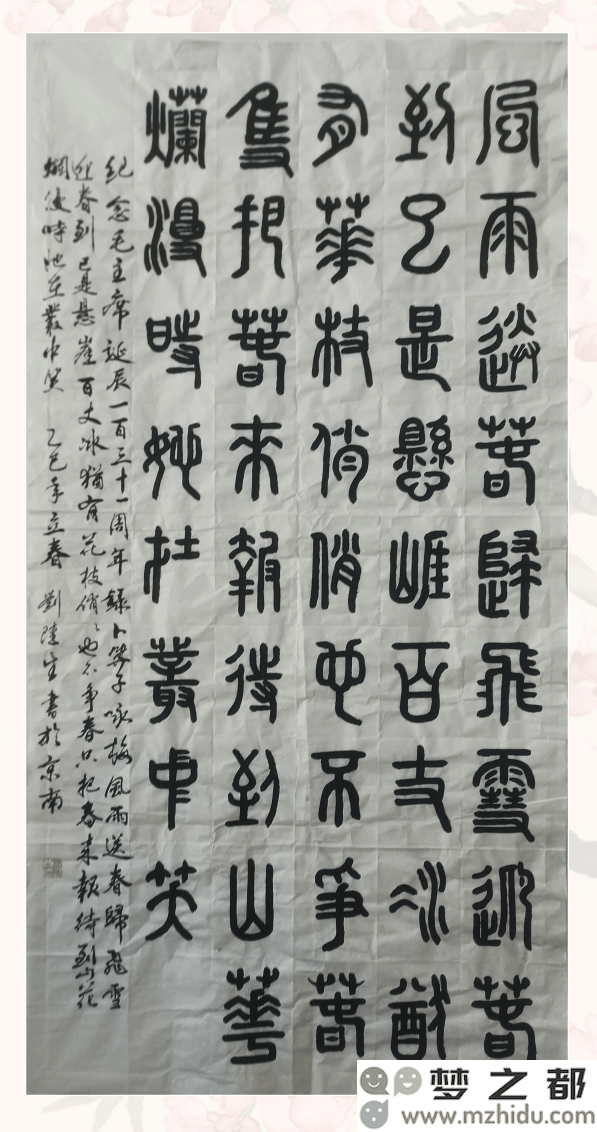 風雨送春歸飛雪迎春
到已是懸崖百丈冰猶
有華枝俏俏也不爭春
隻把春來報待到山華
爛漫時她在叢中笑
纪念毛主席誕辰一百三十一周年録卜算子咏梅風雨送春歸飛雪
迎春到已是悬崖百丈冰猶有花枝俏俏也不争春只把春来報待到山花
爛漫時她在叢中笑 乙巳年立春 劉陸生書於京南
梦之都
www.mzhidu.com